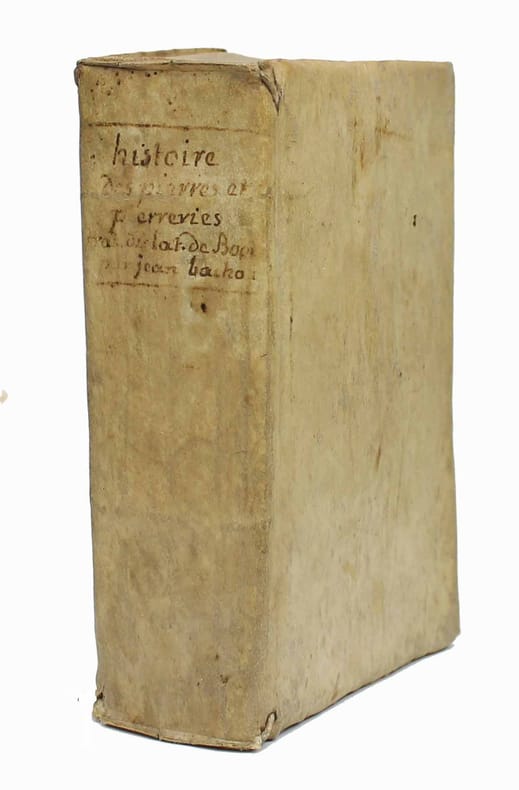 histoire
des pierres et
pierreries
du lat. de Boo
jean bacho